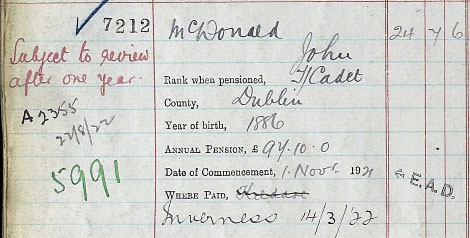 7212 McDonald 24 7 6
John
Subject to review
after one year.
Rank when pensioned, T/Cadet
County, Dublin
A 2355
22/8/22
Year of birth, 1886
ANNUAL PENSION, £ 97.10.0
5991
Date of Commencement, 1. Novr. 1921
← E.A.D.
WHERE PAID, Kildare
Inverness 14/3/22